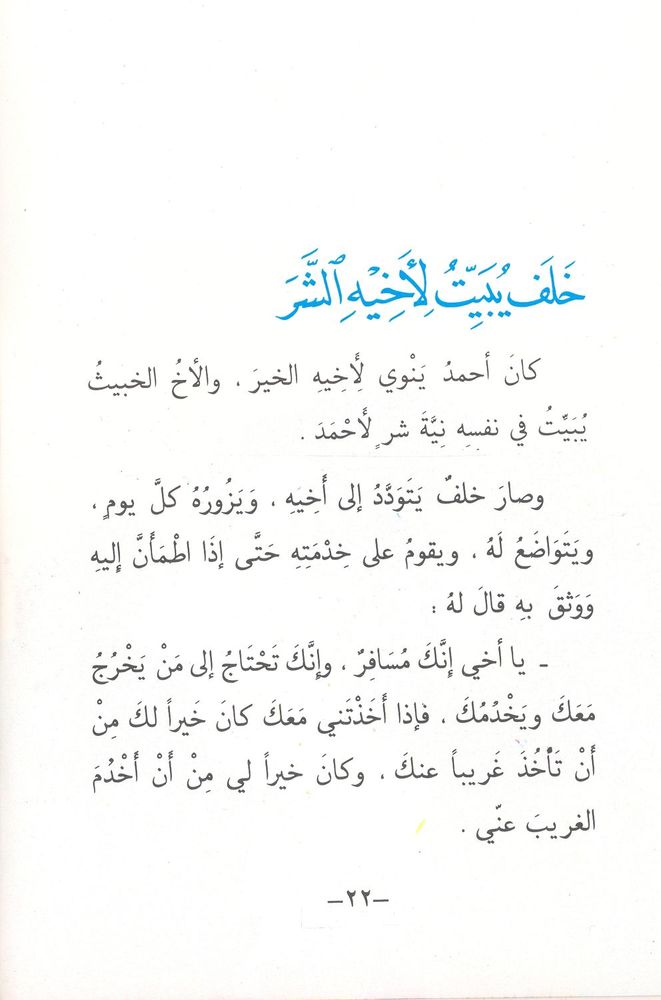 خَلَف يُبَيِّتُ لِأَخِيْهِ الشَّرَ
كانَ أحمدُ يَنْوي لِأَخِيهِ الخيرَ ، والأخُ الخبيثُ
يُبَيّتُ في نفسِهِ نِيَّةَ شر لِأَحْمَدَ .
وصارَ خلفٌ يَتَودَّدُ إلى أَخِيهِ ، وَيَزُورُهُ كلَّ يومٍ ،
ويَتَوَاضَعُ لَهُ ، ويقومُ على خِدْمَتِهِ حَتَّى إذَا اطْمَأَنَّ إليهِ
وَوَثقَ بهِ قالَ لهُ :
ـ يا أخي إنَّكَ مُسَافِرٌ ، وإنَّكَ تَحْتَاجُ إلى مَنْ يَخْرُجُ
مَعَكَ ويَخْدُمُكَ ، فإذا أَخَذْتَني مَعَكَ كانَ خَيراً لكَ مِنْ
أَنْ تَأْخُذَ غَريباً عنكَ ، وكانَ خيراً لي مِنْ أَنْ أَخْدُمَ
الغريبَ عنّي .
–٢٢–